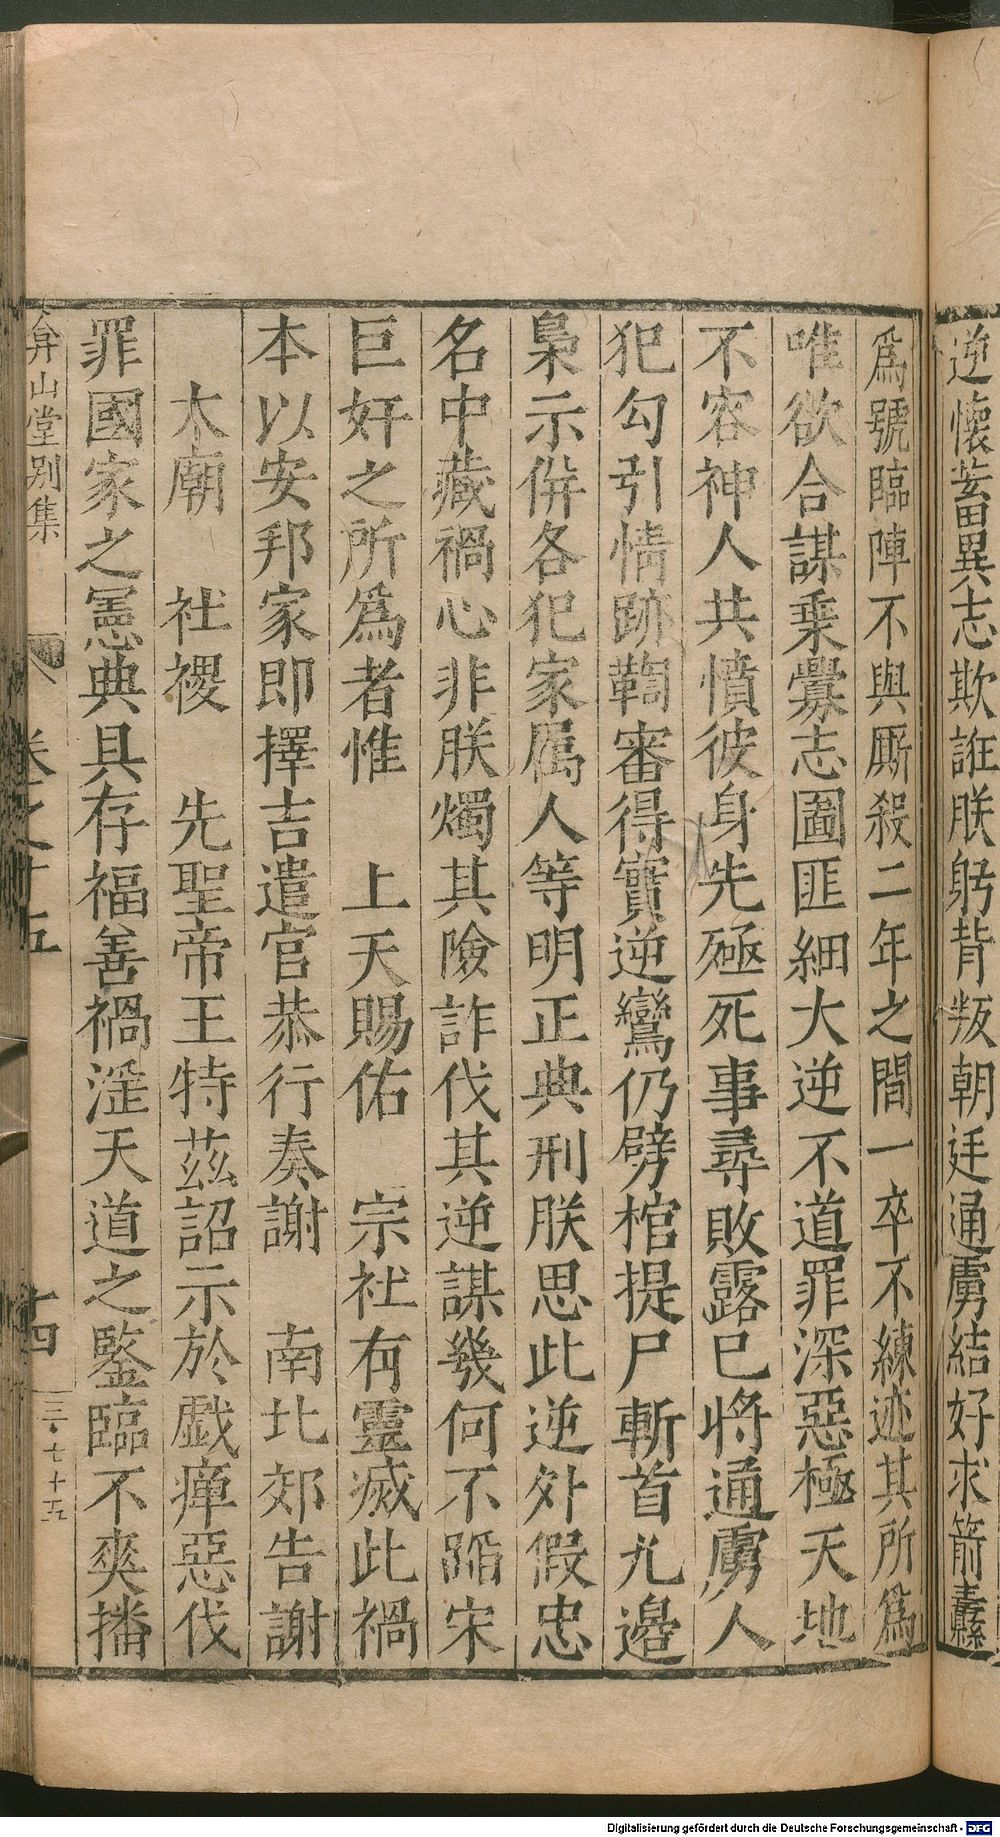 逆懷蓄異志欺誑朕躬背叛朝廷通虜結好求箭纛
爲號臨陣不與厮殺二年之間一卒不練迹其所爲
唯欲合謀乗釁志圖匪細大逆不道罪深惡極天地
不容神人共憤彼身先殛死事尋敗露已將通虜人
犯勾引情跡鞫審得實逆鸞仍劈棺提尸斬首九邉
梟示併各犯家属人等明正典刑朕思此逆外假忠
名中藏禍心非朕燭其險詐伐其逆謀幾何不蹈宋
巨奸之所爲者惟 上天賜佑 宗社有靈滅此禍
本以安邦家即擇吉遣官恭行奏謝 南北郊告謝
太廟 社稷 先聖帝王特茲詔示於戯癉惡伐
罪國家之憲典具存福善禍滛天道之鑒臨不爽播
弇山堂别集
卷之十五
十四
三·七十五
Digitalisierung gefördert durch die Deutsche Forschungsgemeinschaft - DFG